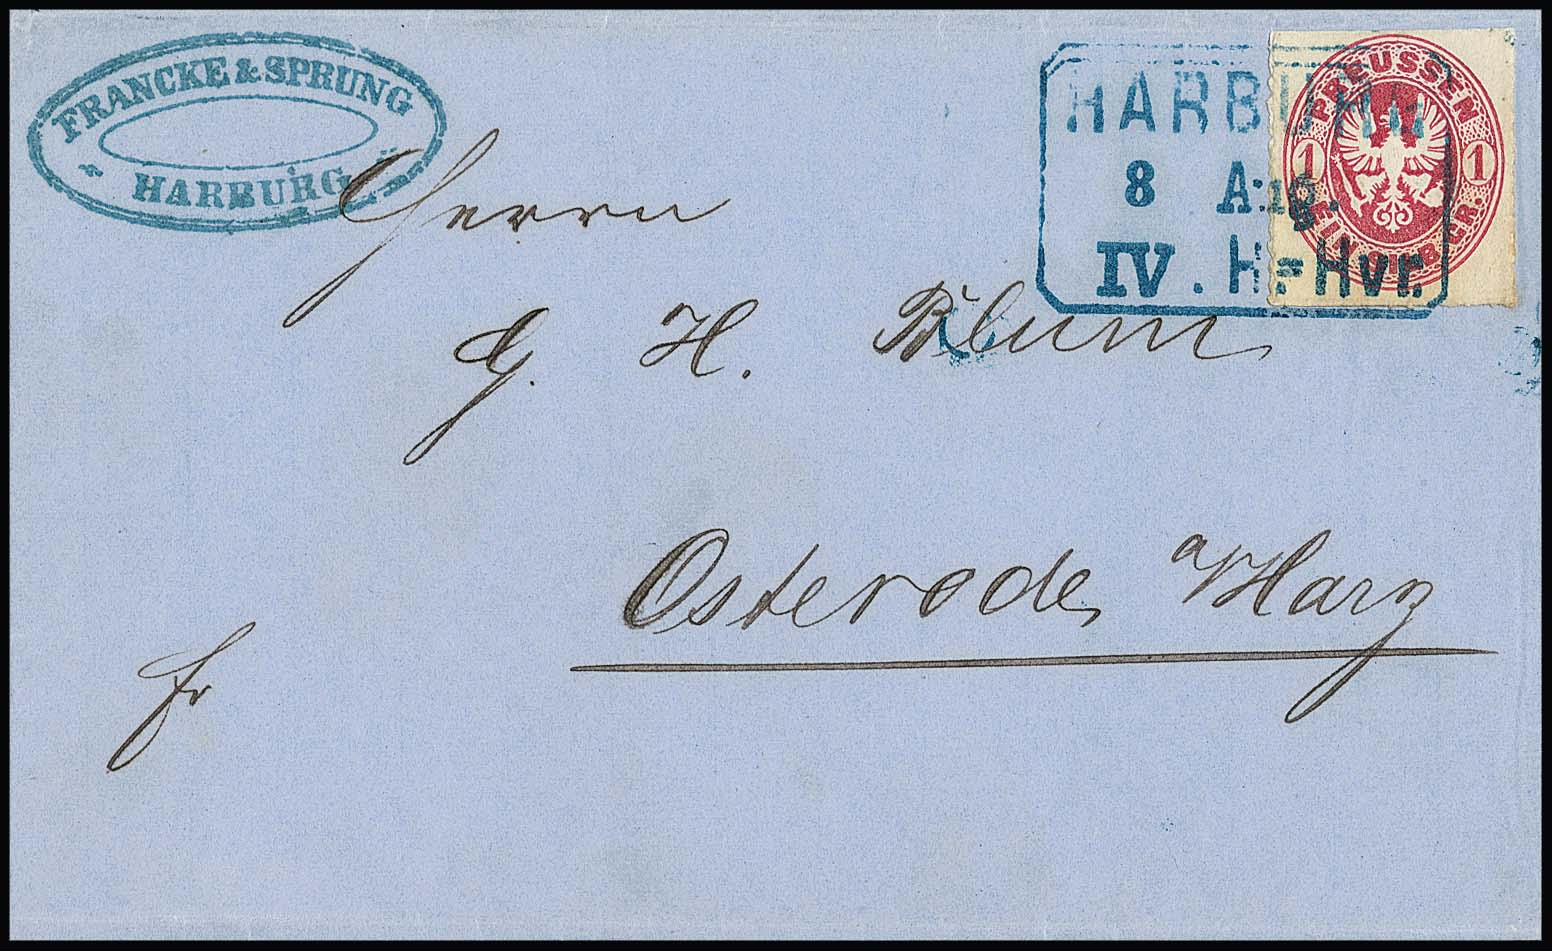 FRANCKE & SPRUNG
HARBURG
HARBURG
8 Aug.
IV. H=Hvr.
PREUSSEN
1 1
EIN SILB. GR.
Herrn
G. H. Blum
Osterode a/Harz
fr